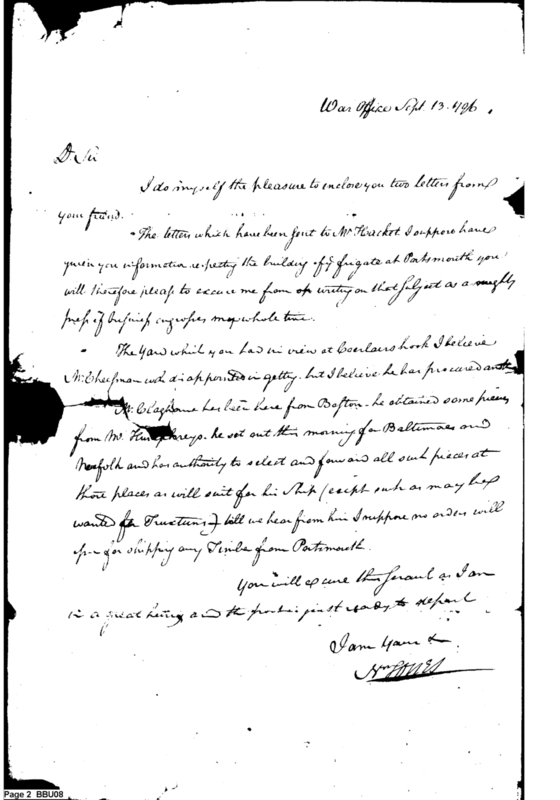 War Office Sept. 13. 1796.
Dr Sir
I do myself the pleasure to inclose you two letters from
your friend.
The letters which have been sent to Mr Hackot I suppose have
given you information respecting the building of ye frigate at Portsmouth you
will therefore please to excuse me from writing on that subject as a mighty
press of business engrosses my whole time.
The Yard which you had in view at Coerlaers hook I believe
Mr Cheesman was disappointed in getting. but I believe he has procured another
Mr Claghorne has been here from Boston. he obtained some pieces
from Mr Humphreys. he set out this morning for Baltimore and
Norfolk and has authority to select and forward all such pieces at
those places as will suit for his Ship (except such as may be
wanted for Truxtuns) till we hear from him I suppose no orders will
for shipping any Timber from Portsmouth.
You will excuse this Scrawl as I am
in a great hurry and the post is just ready to depart
I am Yours &